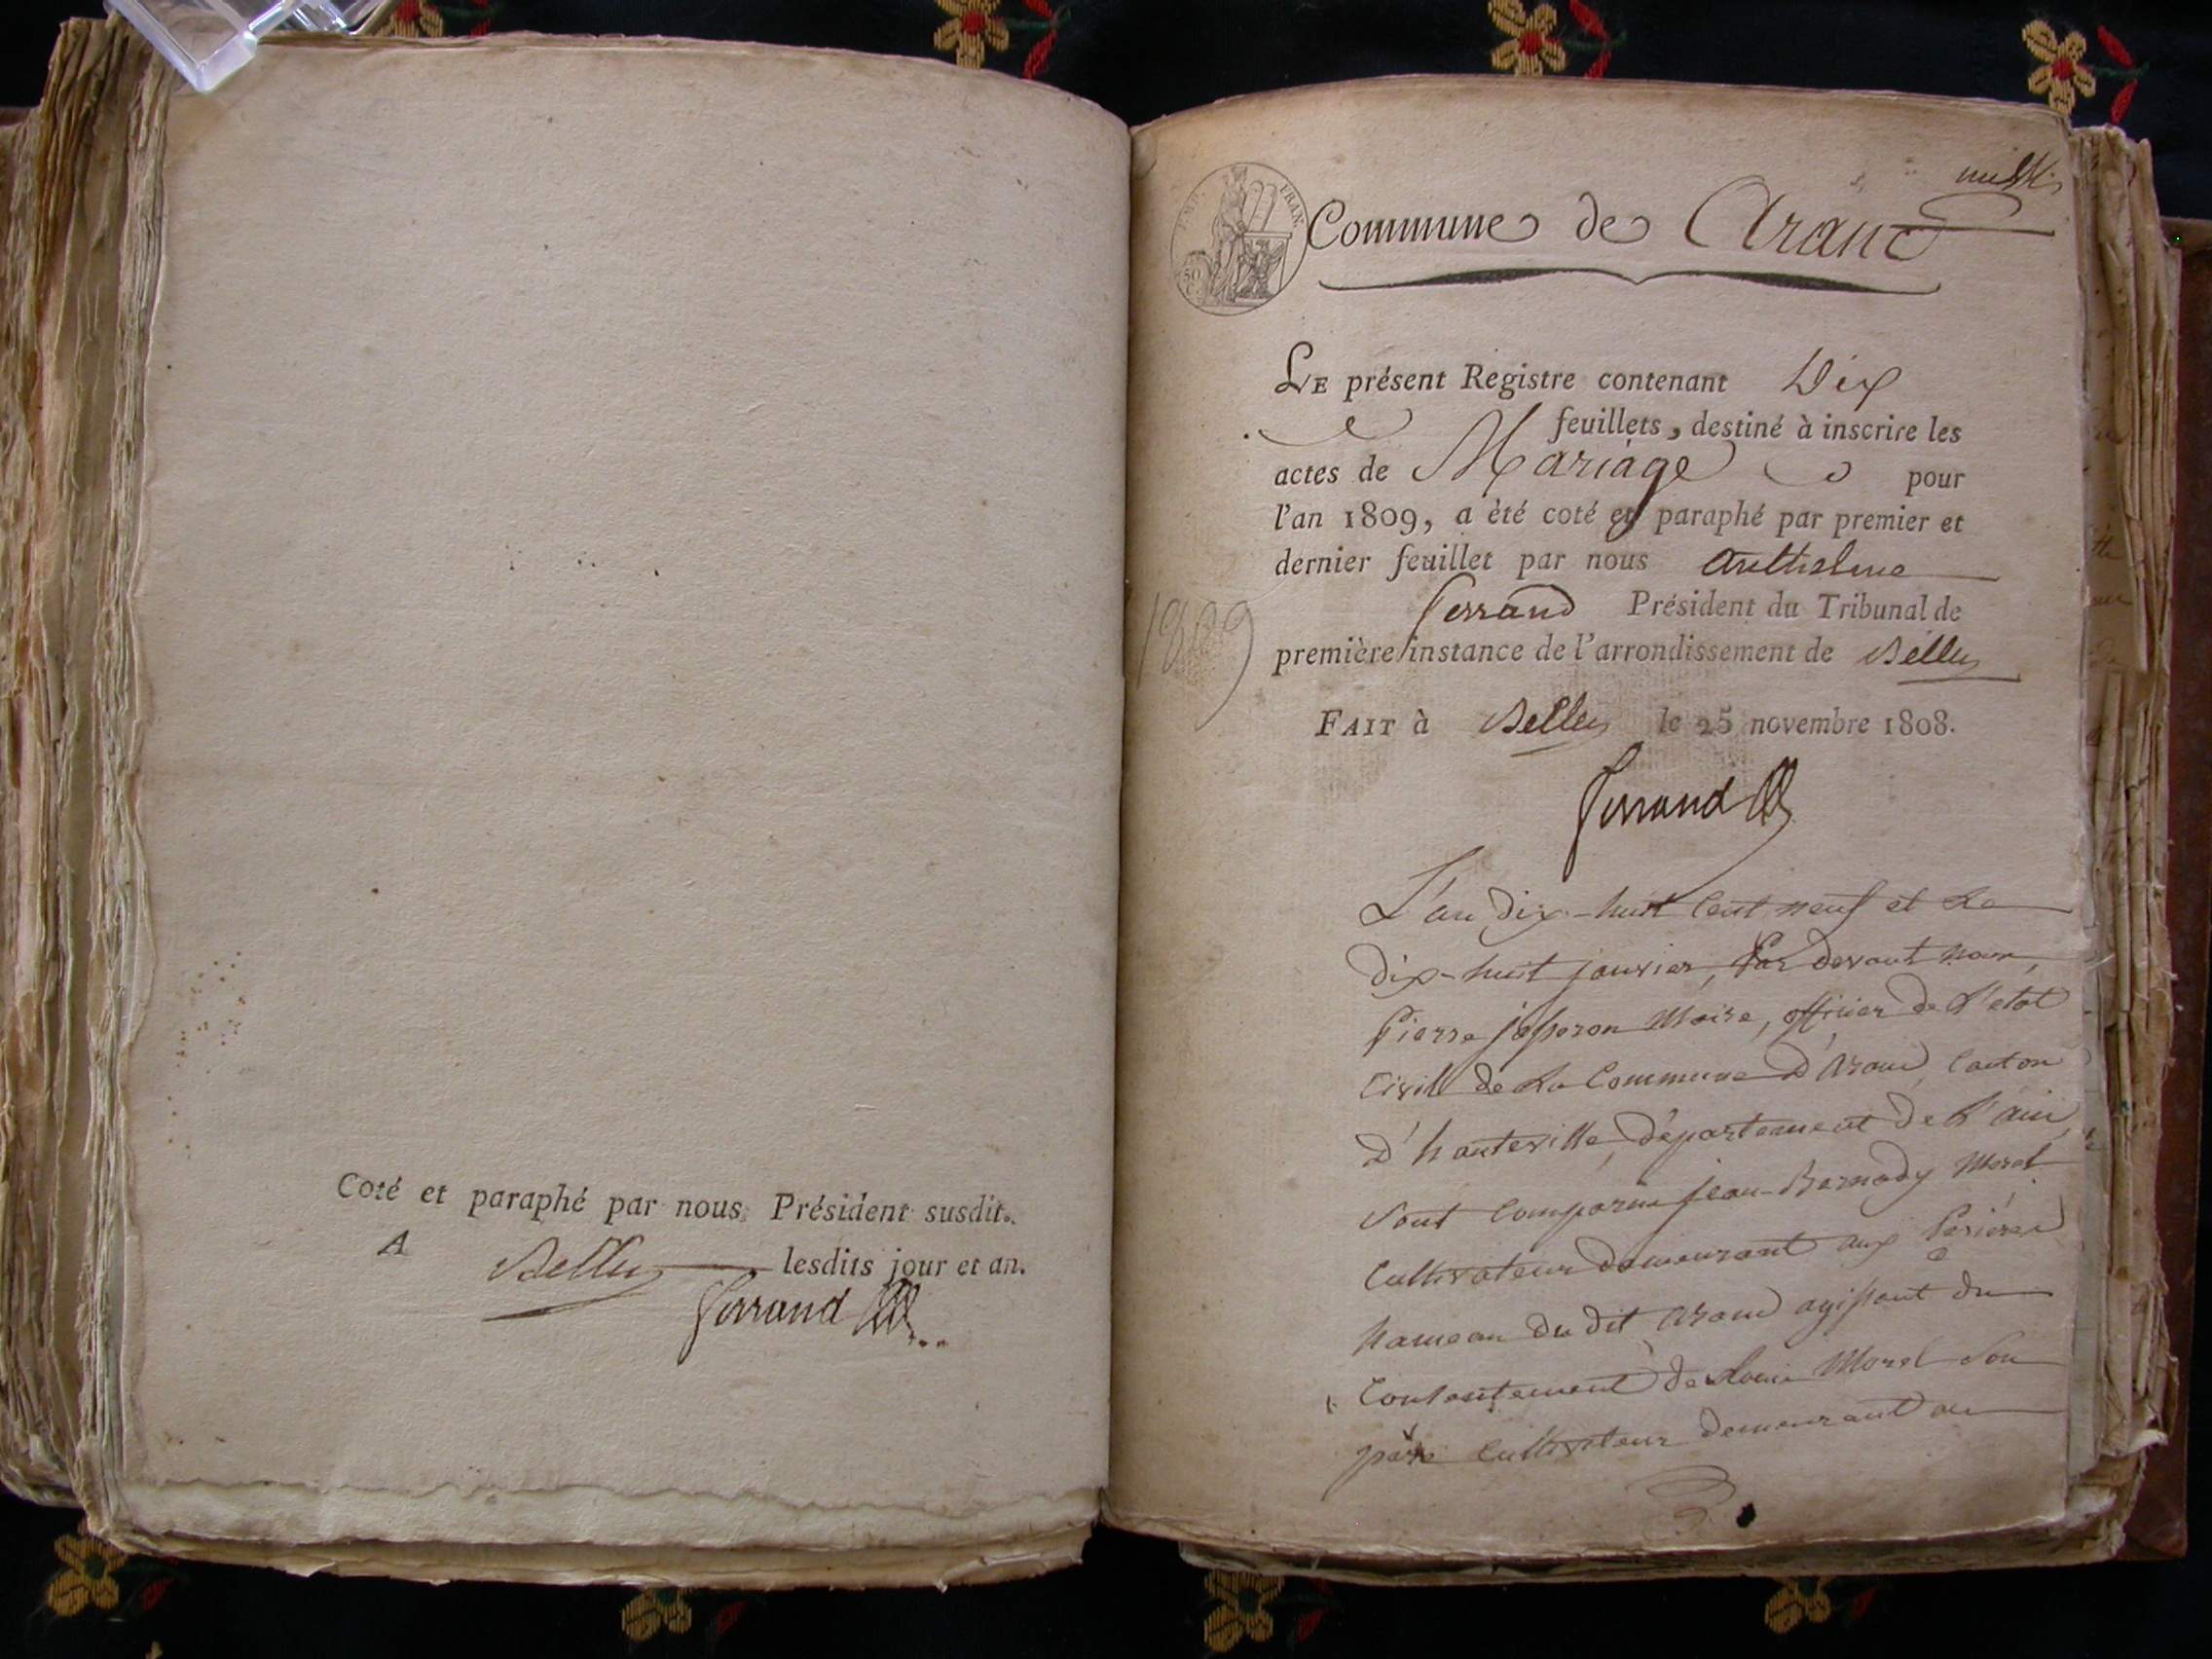 Coté et paraphé par nous Président susdit.
A Belley lesdits jour et an.
Ferrand
EMP. FRAN.
50
C.
Commune de Aranc
LE présent Registre contenant Dix
feuillets, destiné à inscrire les
actes de Mariage pour
l'an 1809, a été coté et paraphé par premier et
dernier feuillet par nous Anthelme
Ferrand Président du Tribunal de
première instance de l'arrondissement de Belley
1809
FAIT à Belley le 25 novembre 1808.
Ferrand
L'an dix-huit cent neuf et le
dix-huit janvier, Par devant nous,
Pierre Maire, officier de l'etat
Civil de la Commune D'Aranc Canton
D'hauteville, département de l'ain,
Sont Comparus jean- Morel
Cultivateur demeurant aux
hameau du dit Aranc agissant du
Consentement de Louis Morel Son
père Cultivateur demeurant au